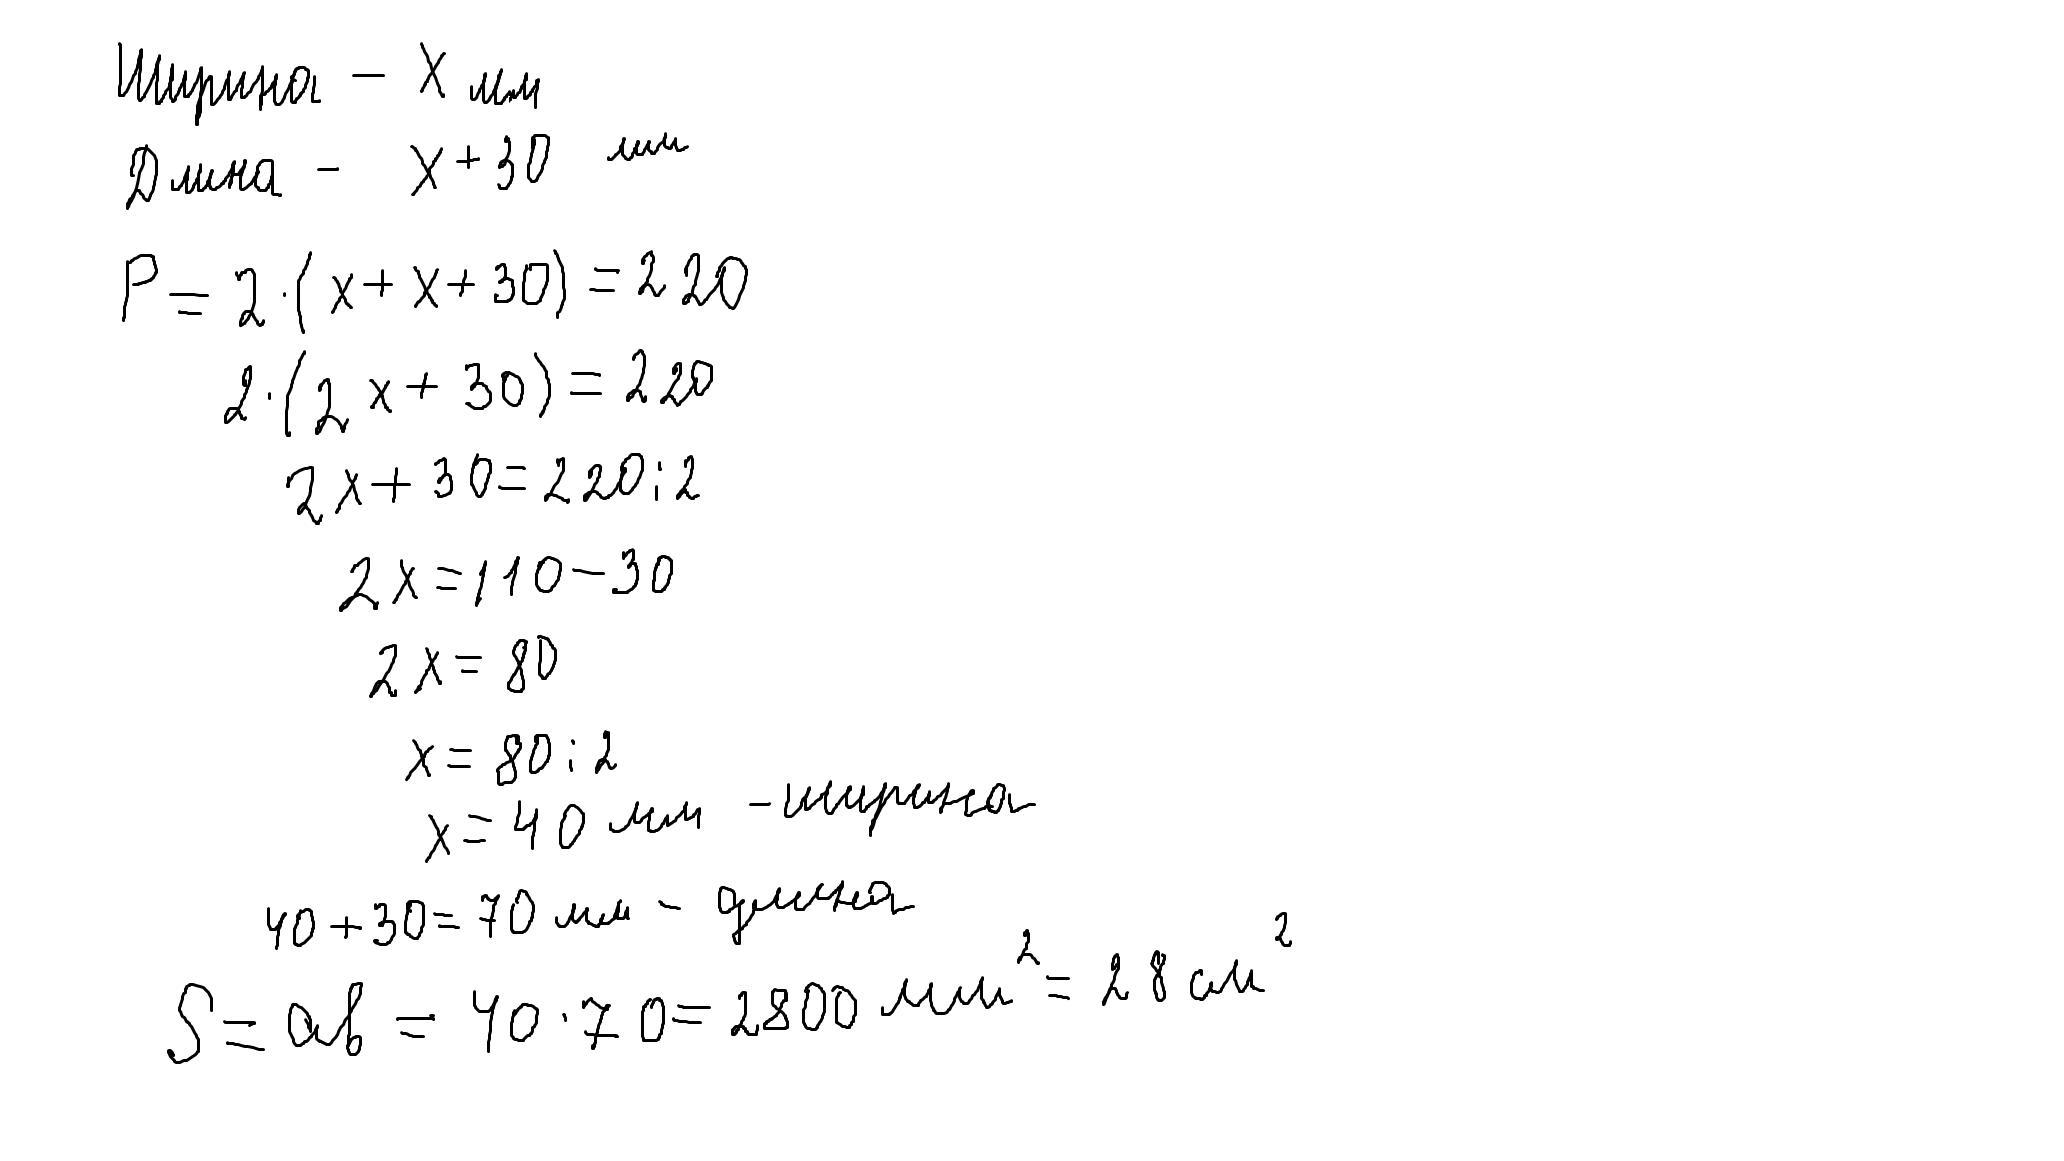 Ширина - x мм
Длина - x+30 мм
P = 2·(x+x+30) = 220
2·(2x+30) = 220
2x+30=220:2
2x=110-30
2x=80
x=80:2
x=40 мм - ширина
40+30=70 мм - длина
S=ab=40·70=2800 мм²=28 см²